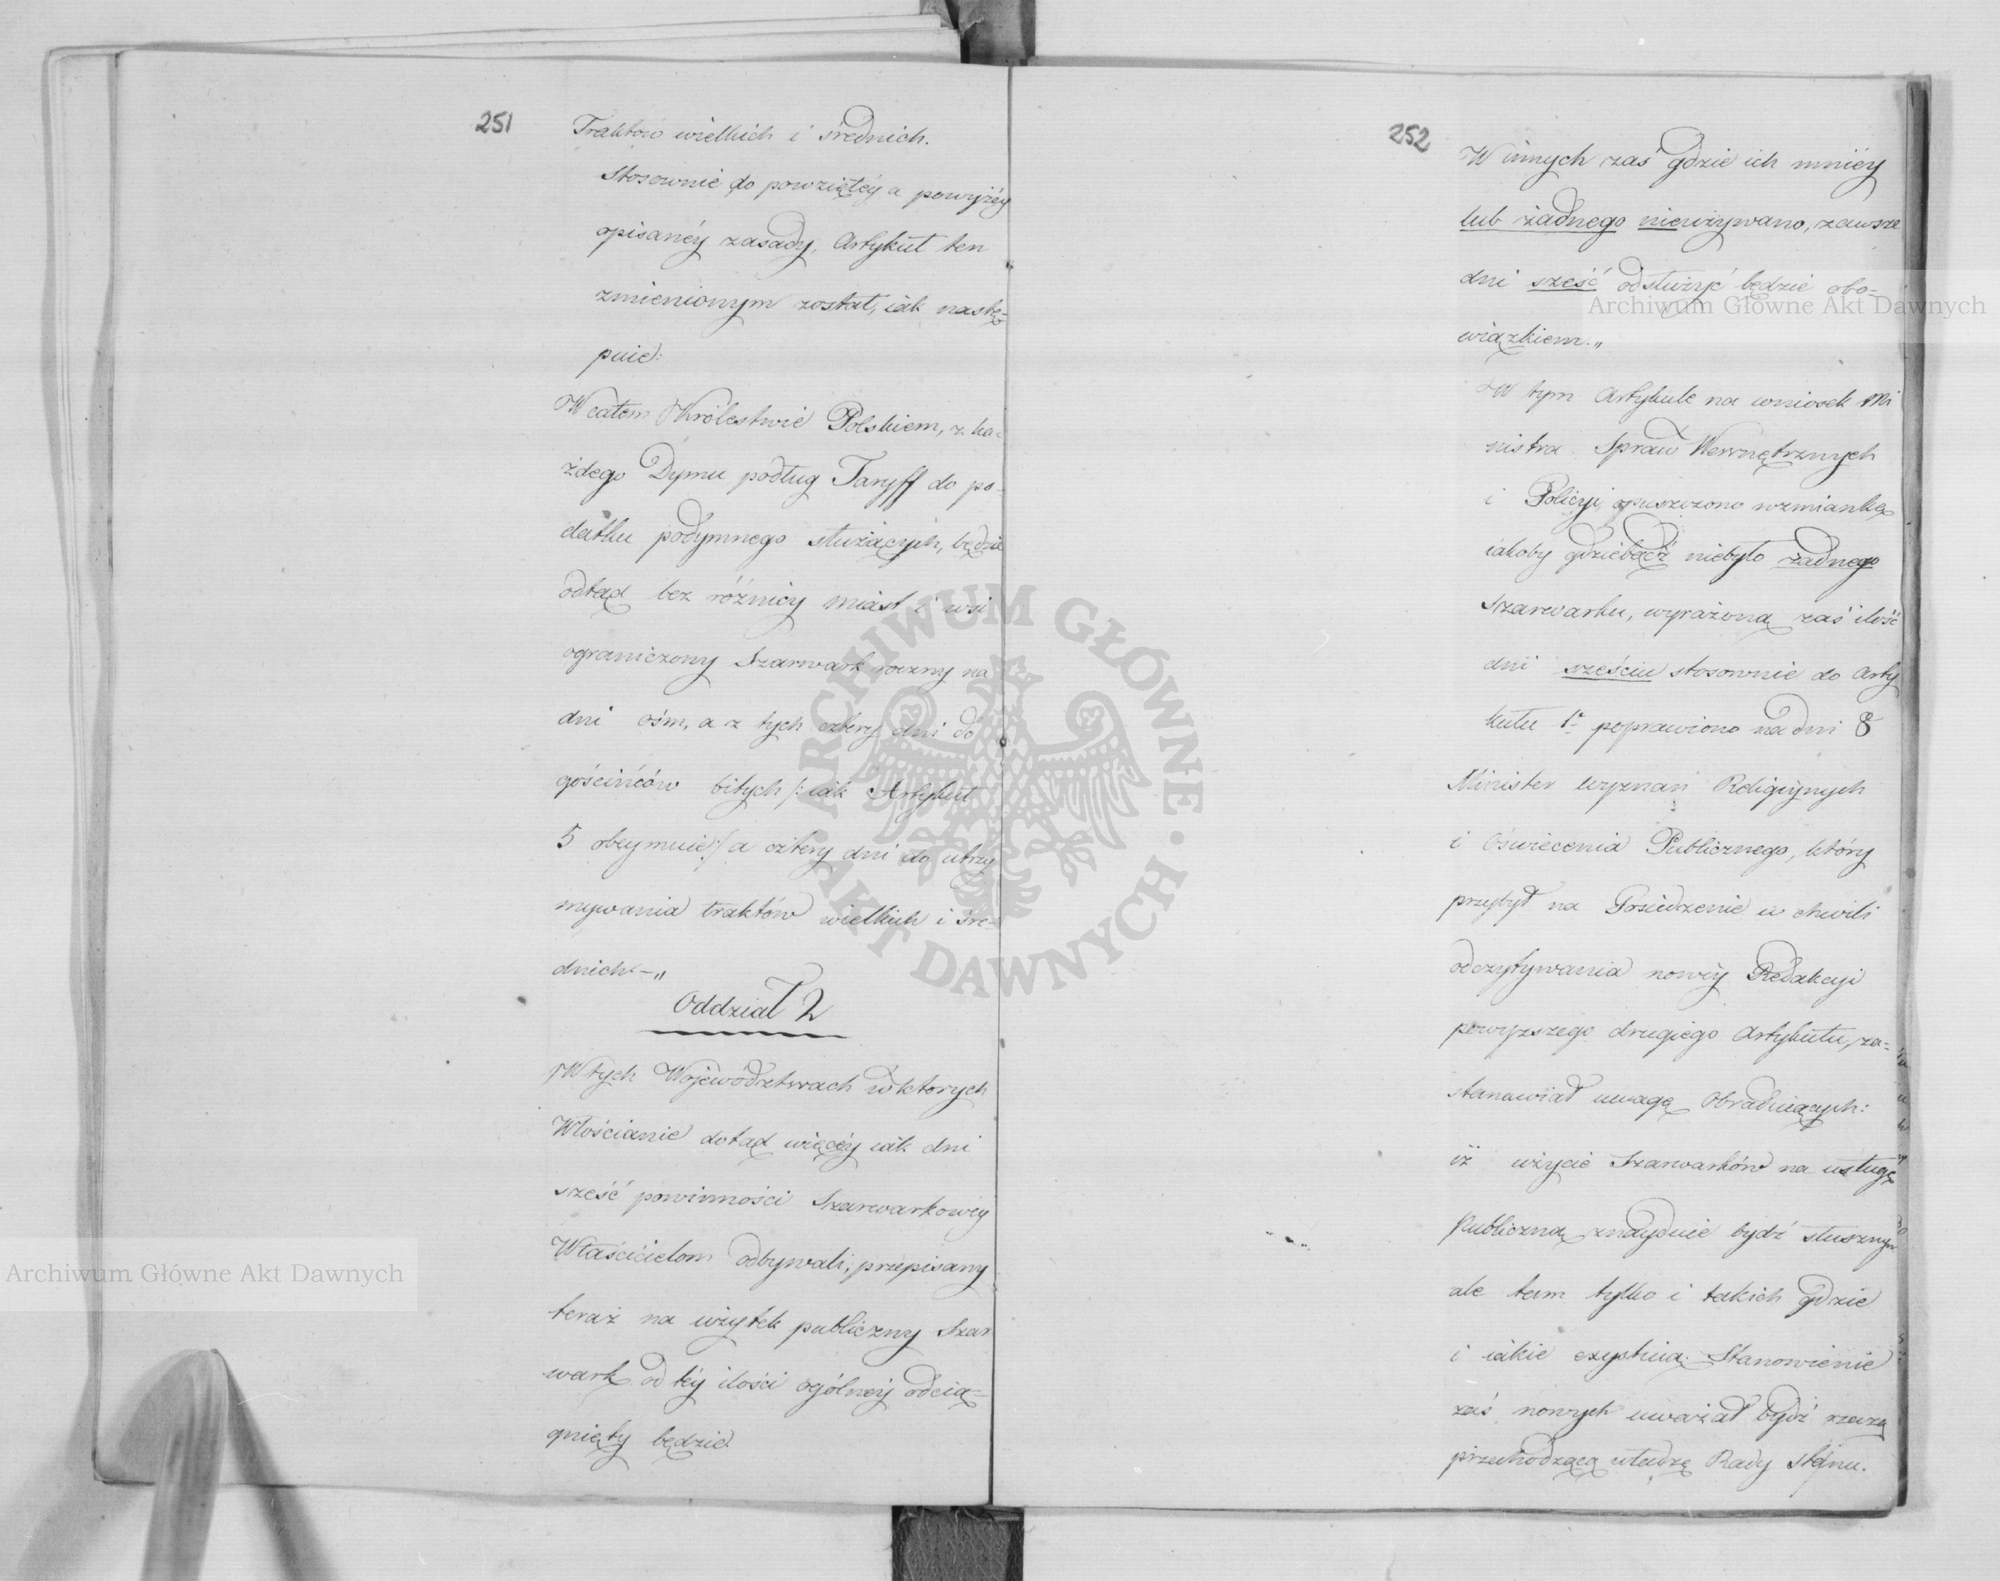 251
Traktow wielkich i srednich.
Stosownie do powziętéy a powyżéy
opisanéy zasady, Artykuł ten
zmienionym został, iak nastę-
puie:
W całem Królestwie Polskiem, z ka-
żdego Dymu podług Taryff do po-
datku podymnego służących, będzie
odtąd bez różnicy miast i wsi
ograniczony Szarwark roczny na
dni ośm, a z tych cztery dni do
gościńców bitych /: iak Artykuł
5 obeymuie :/ a cztery dni do utrzy
mywania traktów wielkich i śre-
dnich -„
Oddział 2
W tych Województwach w ktorych
Włościanie dotąd więcéy iak dni
sześć powinności Szarwarkowéy
Właścicielom odbywali, przepisany
teraz na użytek publiczny Szar
wark od téy ilości ogólnéy odcią-
gnięty będzie
252
W innych zaś gdzie ich mniéy
lub żadnego nieużywano, zawsze
dni sześć odsłużyć będzie obo-
wiązkiem.„
W tym Artykule na wniosek Mi
nistra Spraw Wewnętrznych
i Policyi, opuszczono wzmiankę
iakoby gdziebądź niebyło żadnego
szarwarku, wyrażoną zaś ilość
dni sześciu stosownie do Arty
kułu 1º poprawiono na dni 8
Minister wyznań Religiynych
i Oświecenia Publicznego, który
przybył na Posiedzenie w chwili
odczytywania nowéy Redakcyi
powyższego drugiego Artykułu, za-
stanawiał uwagę Obraduiących:
iż użycie Szarwarków na usługę
Publiczną znayduie bydź słusznym
ale tam tylko i takich gdzie
i iakie exystuią. Stanowienie
zaś nowych uważał bydź rzeczą
przechodzącą władzę Rady Stanu.
Archiwum Główne Akt Dawnych
Archiwum Główne Akt Dawnych
ARCHIWUM GŁÓWNE · AKT DAWNYCH ·